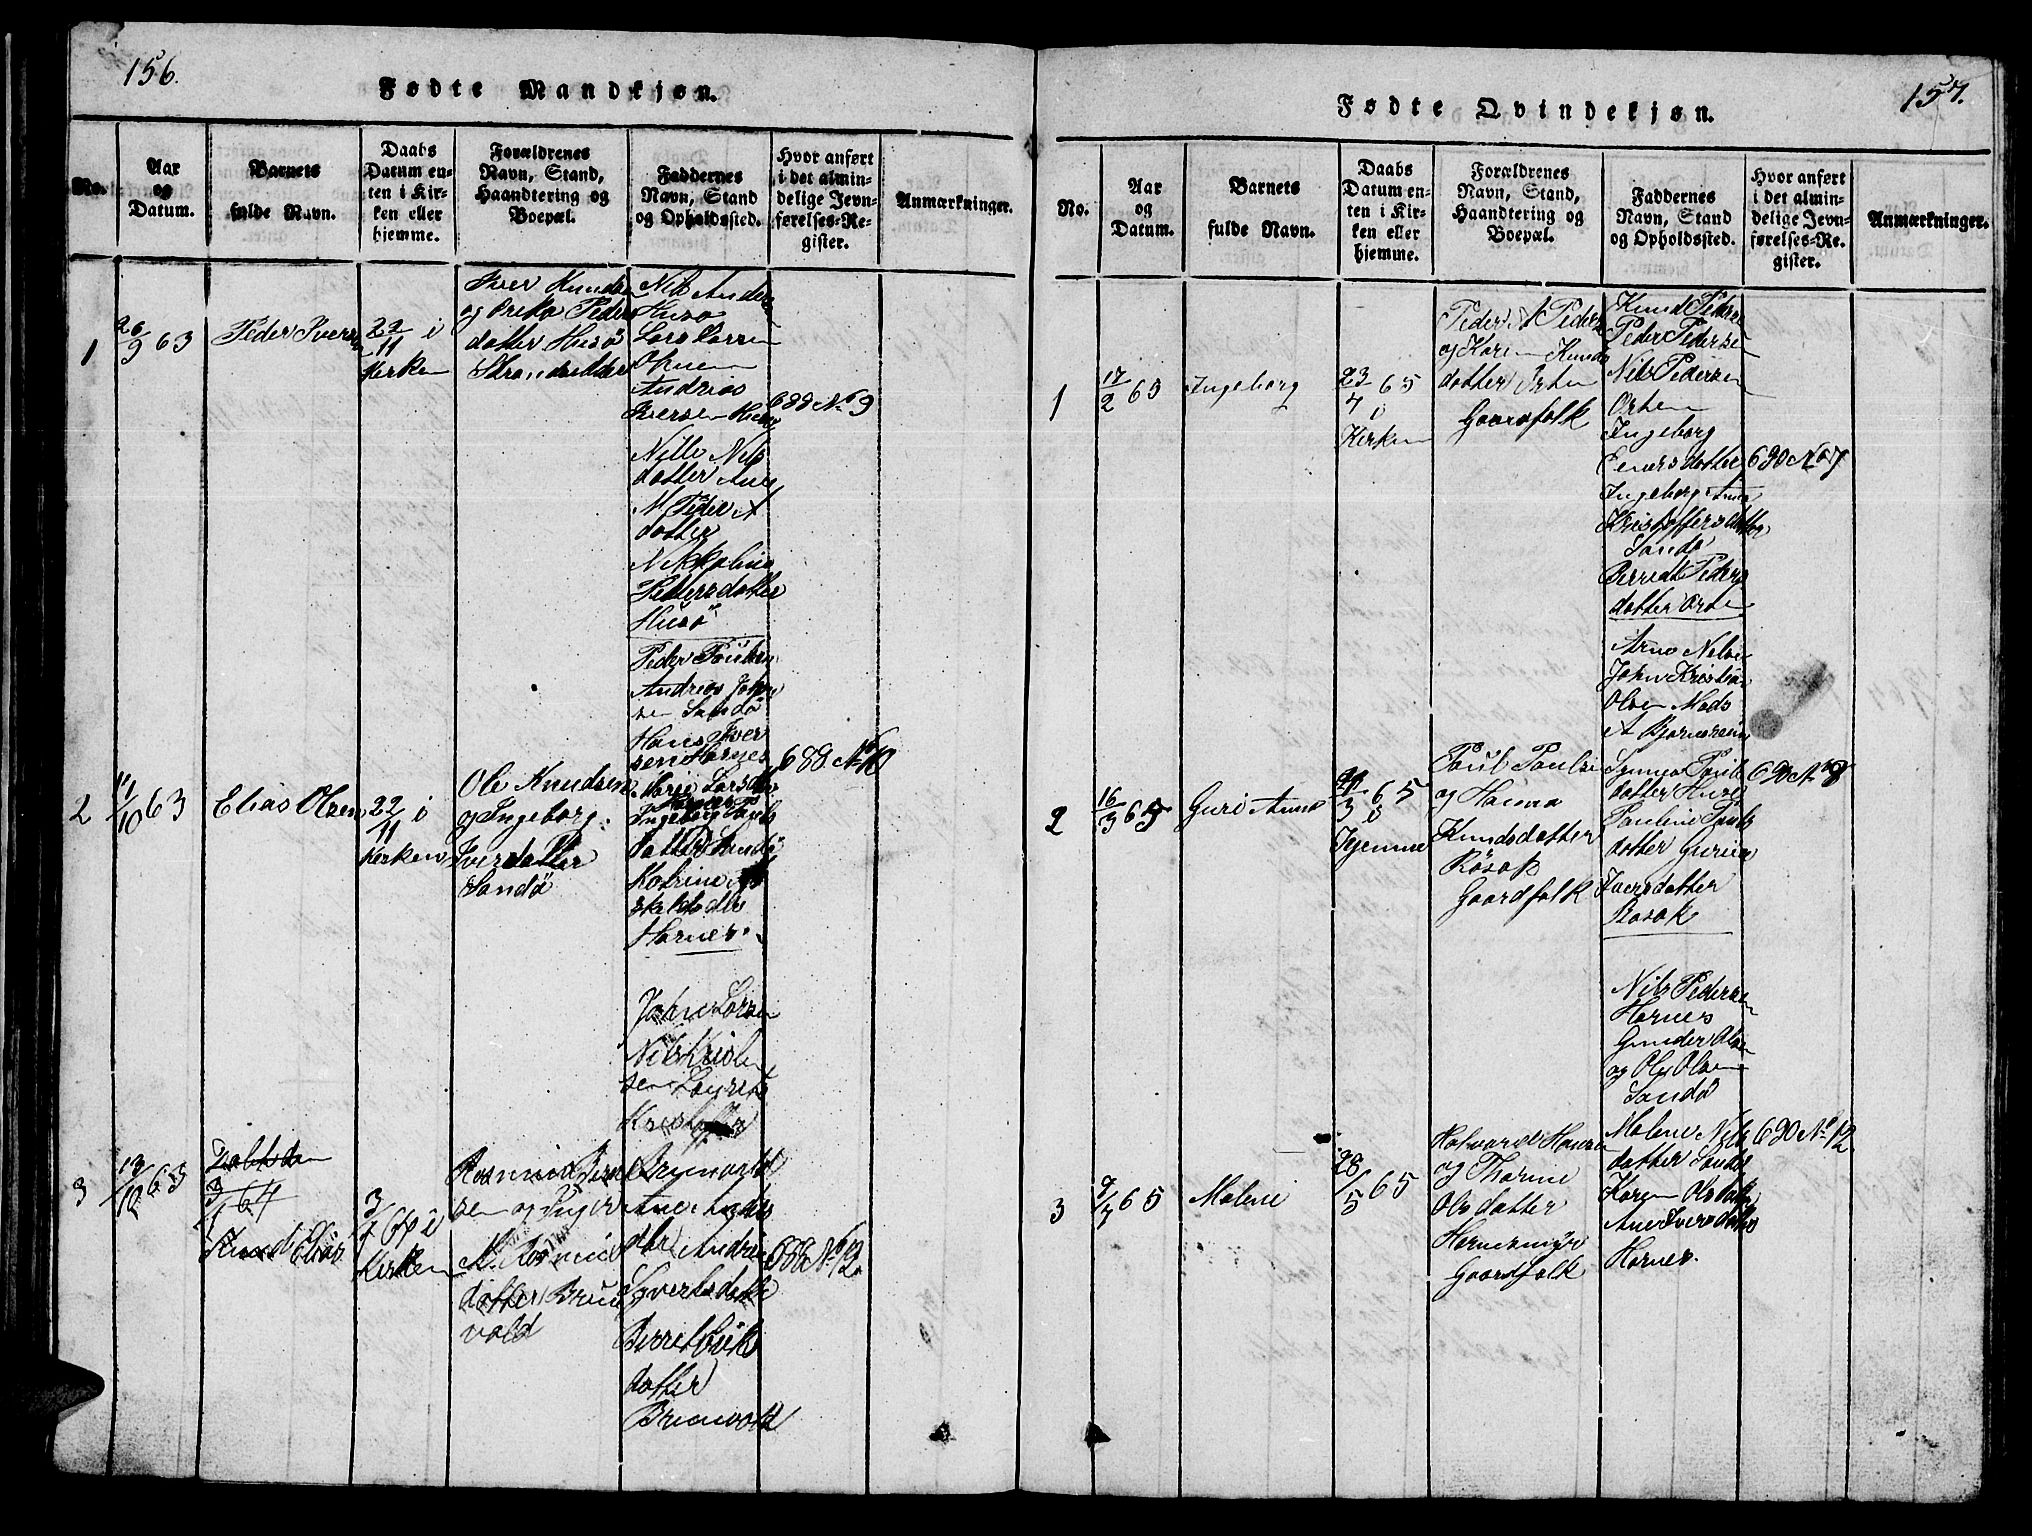 156.
Fødte Mandkjøn.
No.
Aar
og
Datum.
Barnets
fulde Navn.
Daabs
Datum en-
ten i Kir-
ken eller
hjemme.
Forældrenes
Navn, Stand,
Haandtering og
Boepæl.
Faddernes
Navn, Stand
og Opholdssted.
Hvor anført
i det almin-
delige Jevn-
førelses-Re-
gister.
Anmærkninger.
1
26/9 63
Peder Iversen
22/11 i
Kirken
Iver Knudsen
og Peders
datter Husö
Nils Anders
Husö
Lars Larsen
Andrias
Iversen Husö
Nille Nils
datter
M Peder
datter
Nikkoline
Petersdatter
Husö
688 No 9
2
11/10 63
Elias Olsen
22/11 i
Kirken
Ole Knudsen
og Ingeborg
Iversdatter
Sandö
Peder Poulsen
Andreas John
sen Sandö
Hans Iver
sen Harnes
Marie Larsdtr
Ingeborg Pauls
datter Sandö
Katrine
Harnes
689 No 10
3
13/10 63
3/1 64
Knud Elias
3/1 64 i
Kirken
Rasmus
sen og Inger
M. Rasmus
datter Brun
vold
John Larsen
Nils Kristen
sen
Brunvold
Ane
dtr Andrea
Syvertsdatter
Berret
datter
Brunvold
688 No 12
157.
Fødte Qvindekjøn.
No.
Aar
og
Datum.
Barnets
fulde Navn.
Daabs
Datum en-
ten i Kir-
ken eller
hjemme.
Forældrenes
Navn, Stand,
Haandtering og
Boepæl.
Faddernes
Navn, Stand
og Opholdssted.
Hvor anført
i det almin-
delige Jevn-
førelses-Re-
gister.
Anmærkninger.
1
17/2 65
Ingeborg
23/4 65
i
Kirken
Peder A Peders
og Karen Knuds
datter Orten
Gaardfolk
Knud Peders
Peder Pedersen
Nils Pedersen
Orten
Ingeborg
Einersdatter
Ingeborg Anna
Kristoffersdatter
Sandö
Berret Peders
datter Orten
690 No 7
2
16/3 65
Guri Anna
3 65
Hjemme
Poul Poulsen
og Hanna
Knudsdatter
Rösok
Gaardfolk
Arne Nilsen
John Kristian
Olsen Mads
A Bjørnerem
Synnea Pauls
datter Huse
Pauline Pauls
datter Gurine
Iversdatter
Rösok
690 No 8
3
7/3 65
Malene
28/5 65
Halvard Hansen
og Thorine
Olsdatter
Harnesmyr
Gaardfolk
Nils Pedersen
Harnes
Gunder Olsen
og Ole Olsen
Sandö
Malene Nils
datter Sandö
Karen Olsdatter
Ane Iversdatter
Harnes.
690 No 12